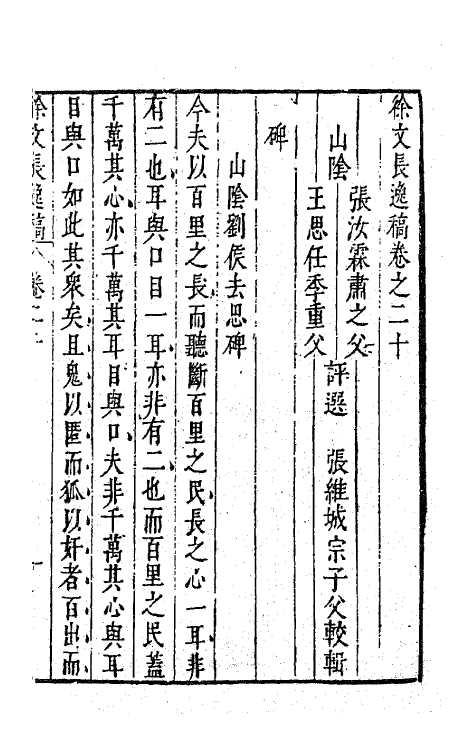 徐文長逸稿卷之二十
山陰
張汝霖肅之父
王思任季重父
評選
張維城宗子父較輯
碑
山陰劉侯去思碑
今夫以百里之長而聽斷百里之民長之心一耳非
有二也耳與口目一耳亦非有二也而百里之民蓋
千萬其心亦千萬其耳目與口夫非千萬其心與耳
目與口如此其衆矣且鬼以匿而狐以奸者百出而
徐文長逸稿
卷之二十
一